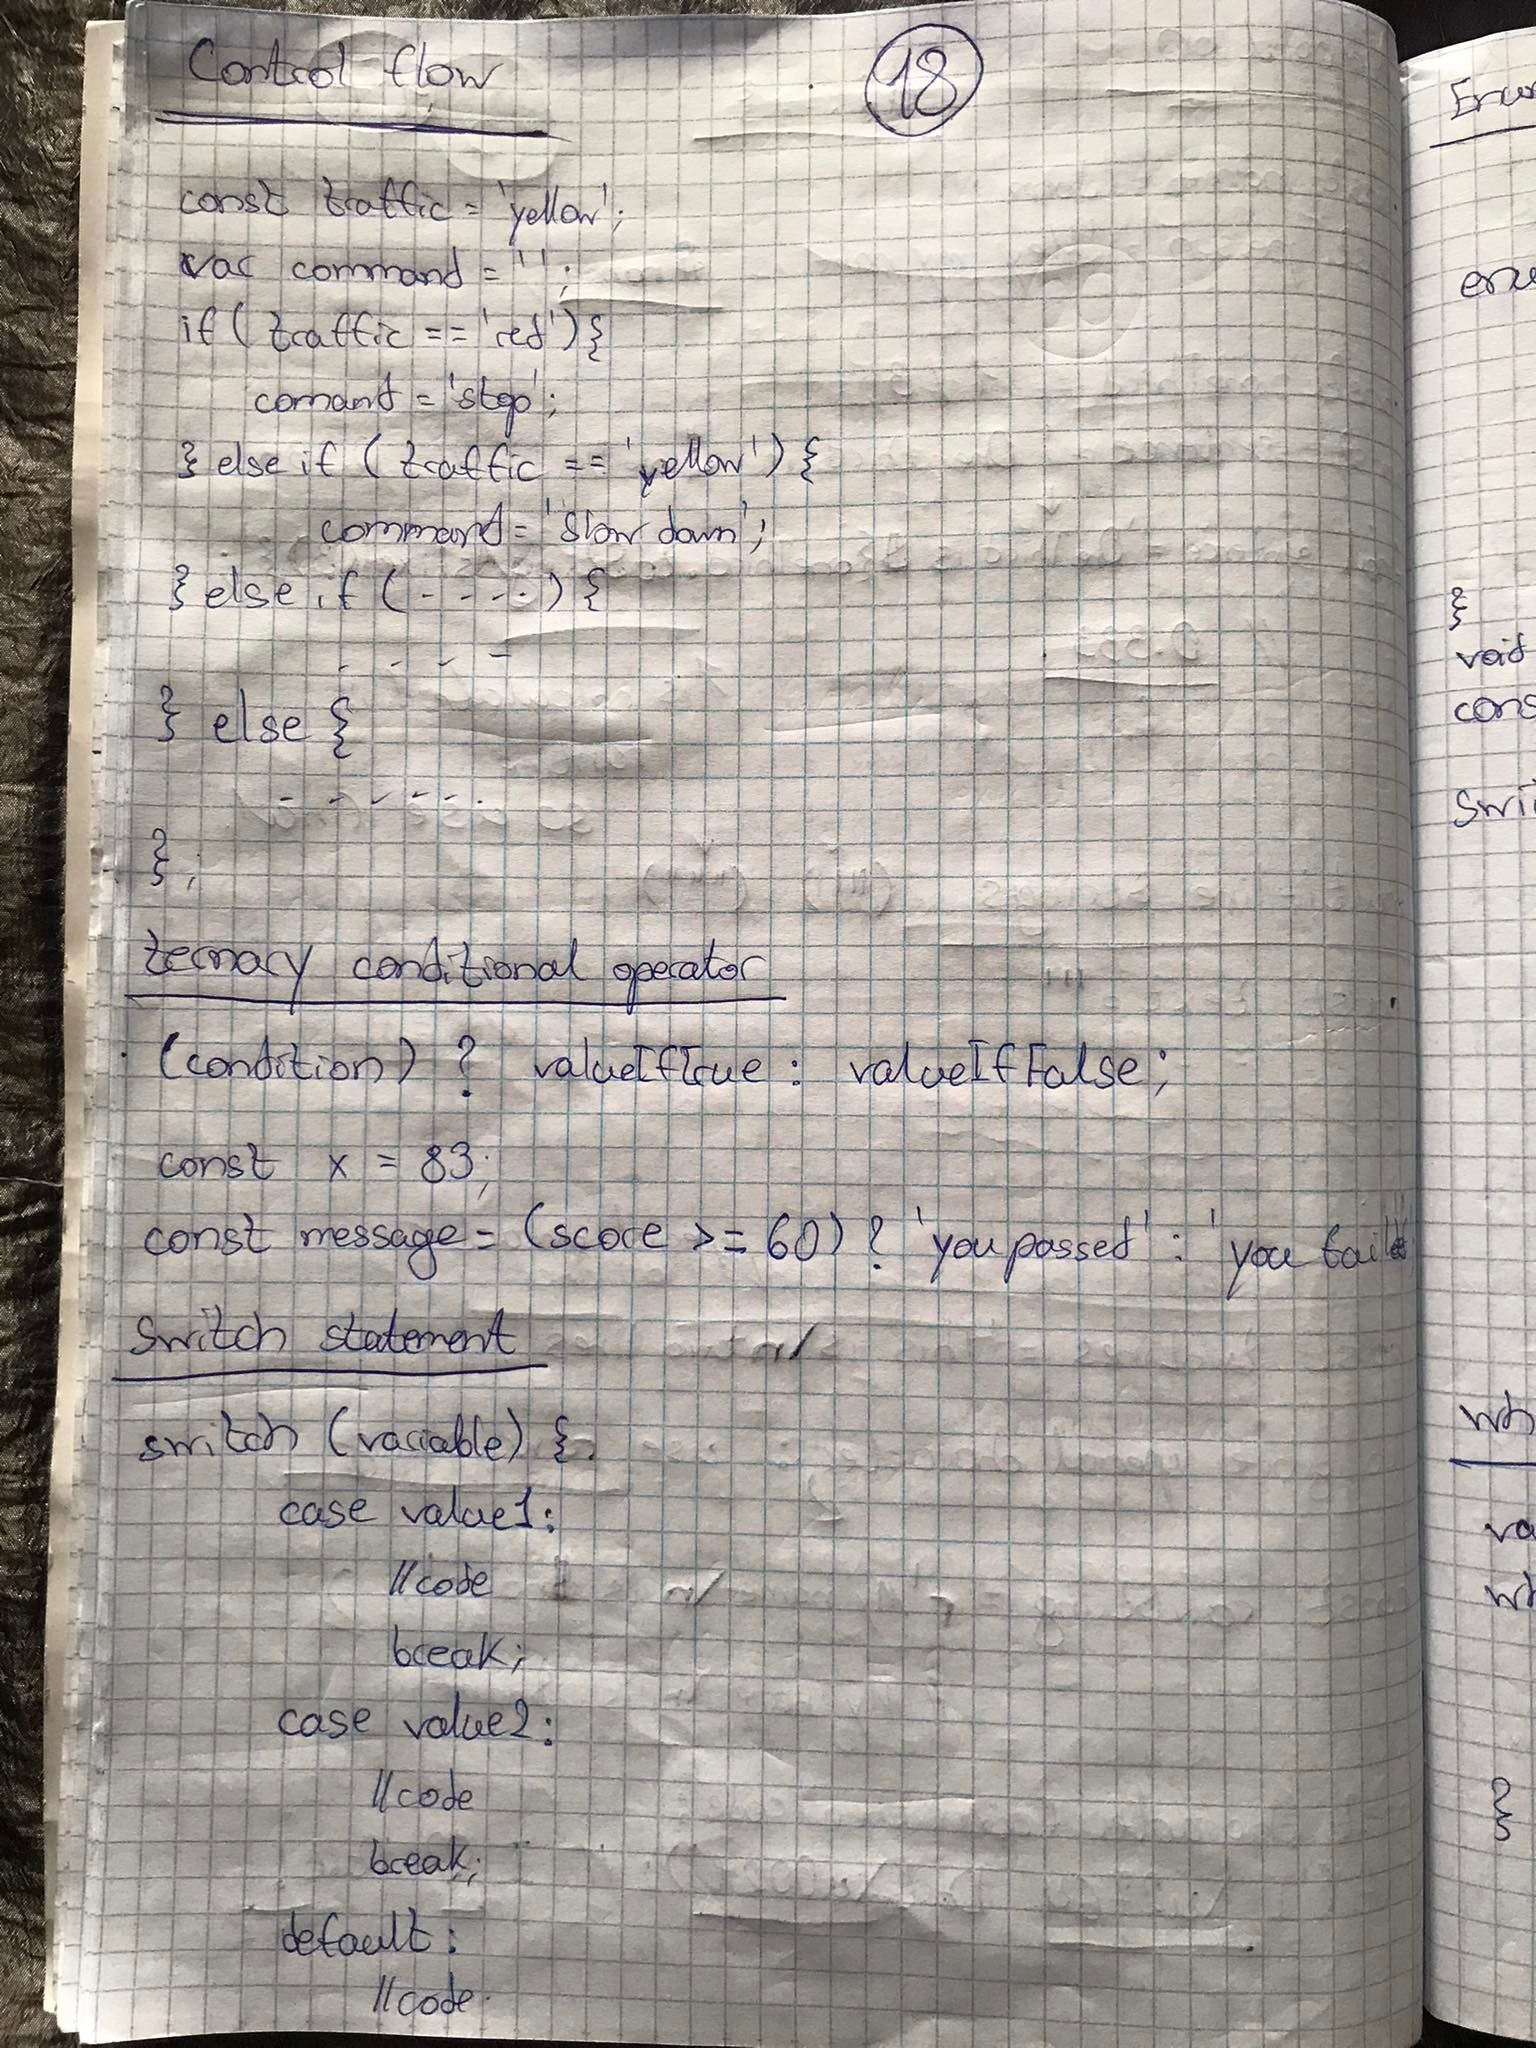 Control flow
18
const traffic = 'yellow';
var command = '';
if (traffic == 'red') {
comand = 'stop';
} else if (traffic == 'yellow') {
command = 'Slow down';
} else if (- - - -) {
- - - -
} else {
- - - - - -
};
ternary conditional operator
(condition) ? valueIfTrue : valueIfFalse;
const x = 83;
const message = (score >= 60) ? 'you passed' : 'you failed'
Switch statement
switch (variable) {
case value1:
//code
break;
case value2:
//code
break;
default:
//code
}
void
}